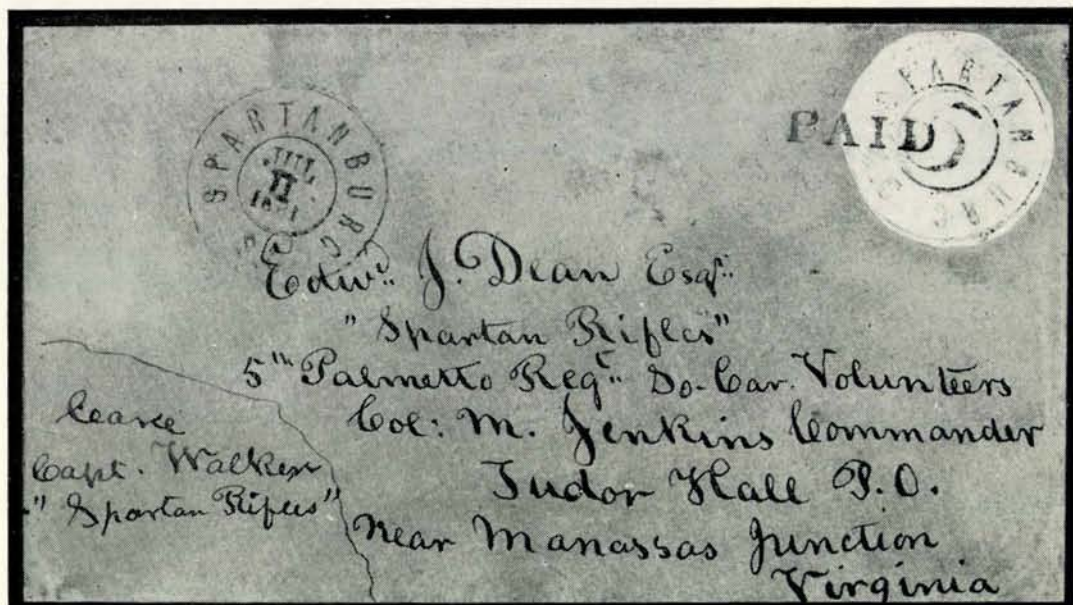 SPARTANBURG S.C.
JUL
11
1861
PAID
SPARTANBURG
Edwd. J. Dean Esqr.
"Spartan Rifles"
5th Palmetto Regt. So. Car. Volunteers
Col: M. Jenkins Commander
Tudor Hall P.O.
Near Manassas Junction
Virginia
Care
Capt. Walker
"Spartan Rifles"